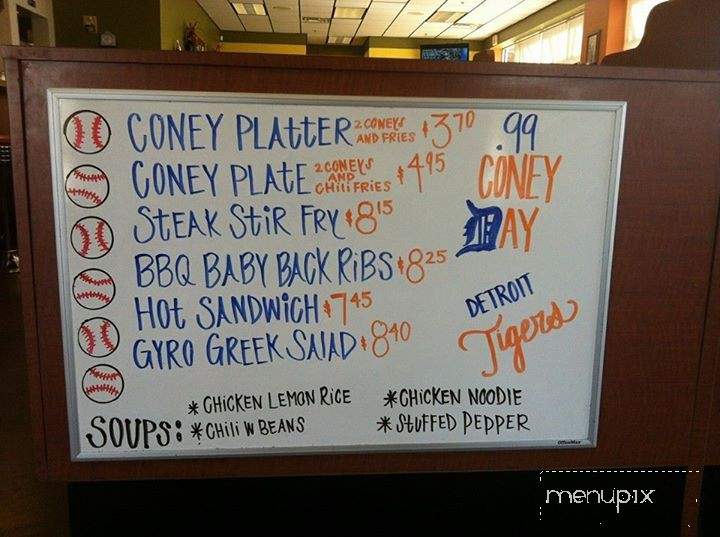 CONEY PLATTER 2 CONEYS AND FRIES $3.70
CONEY PLATE 2 CONEYS AND CHILI FRIES $4.95
STEAK STIR FRY $8.15
BBQ BABY BACK RIBS $8.25
HOT SANDWICH $7.45
GYRO GREEK SALAD $8.40
.99
CONEY
DAY
DETROIT
Tigers
SOUPS:
* CHICKEN LEMON RICE
* CHILI W BEANS
* CHICKEN NOODLE
* STUFFED PEPPER
OfficeMax
menupix